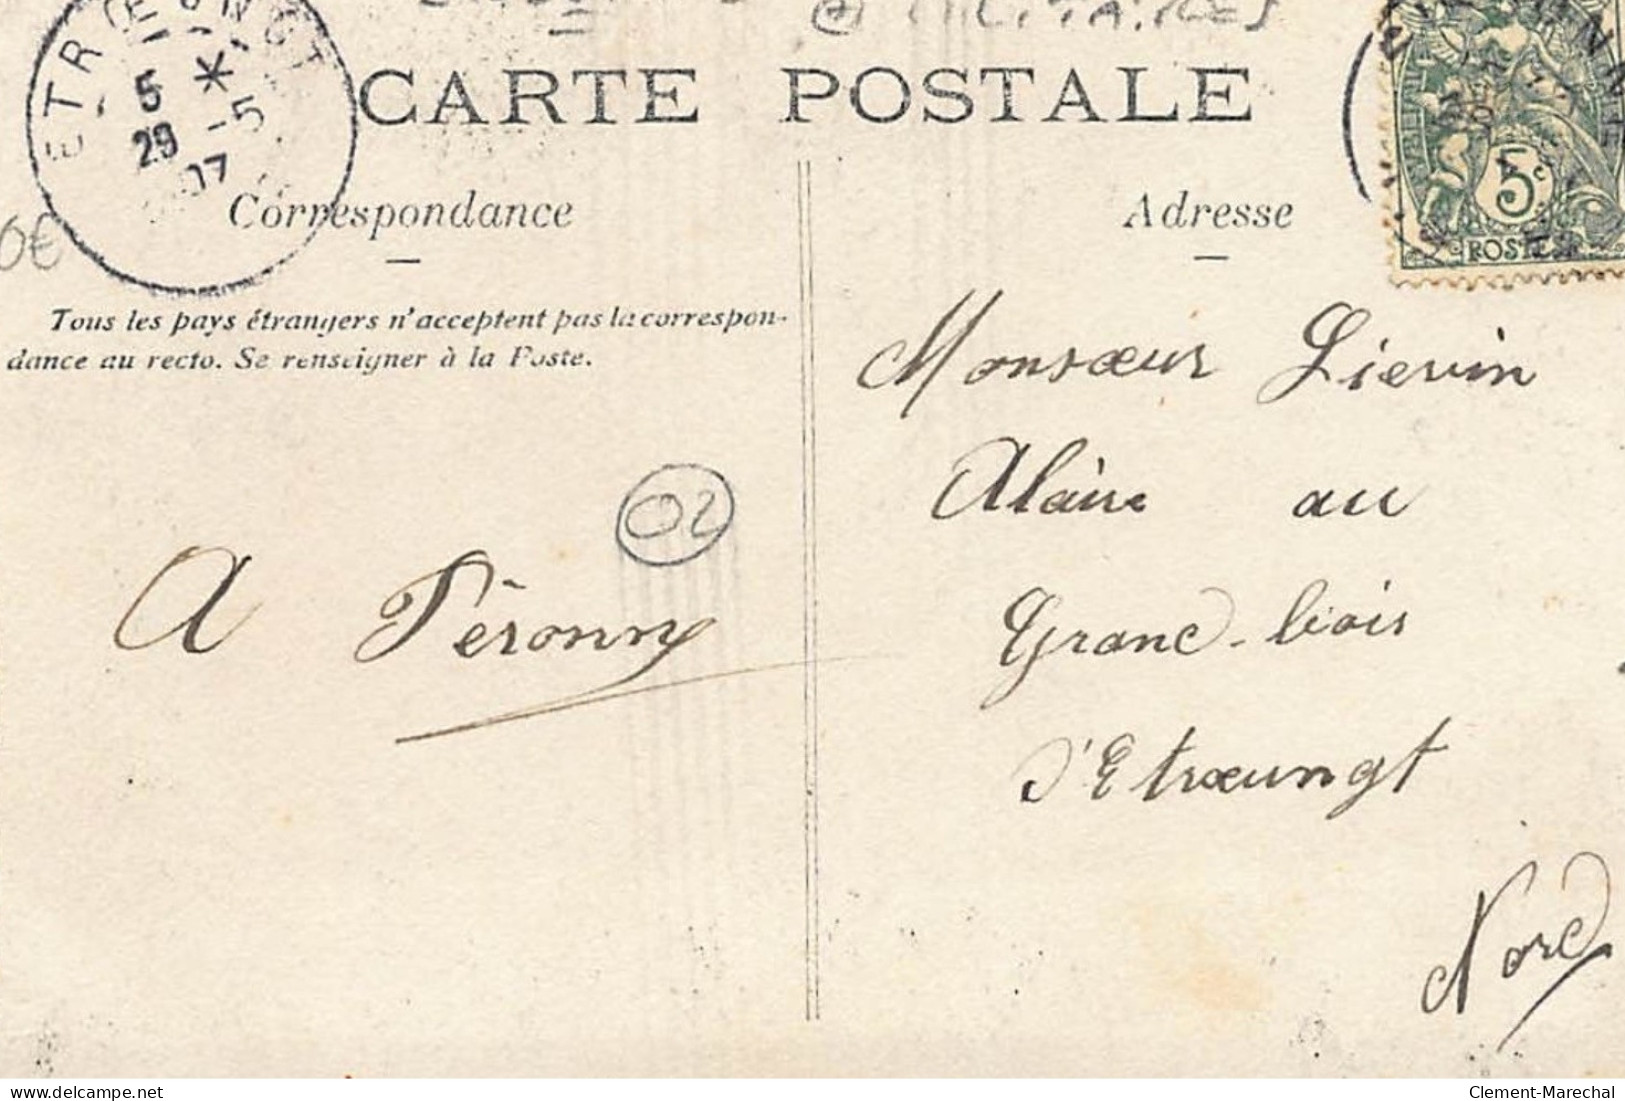 @ MILITAIRES
ETRŒUNGT
5 *
29 -5
07
CARTE POSTALE
5c
POSTES
Correspondance
Adresse
0€
Tous les pays étrangers n'acceptent pas la correspon-
dance au recto. Se renseigner à la Poste.
Monsœur Lievin
Alaire au
Grand-bois
d'Etrœungt
Nord
02
A Péronny
delcampe.net
Clement-Marechal